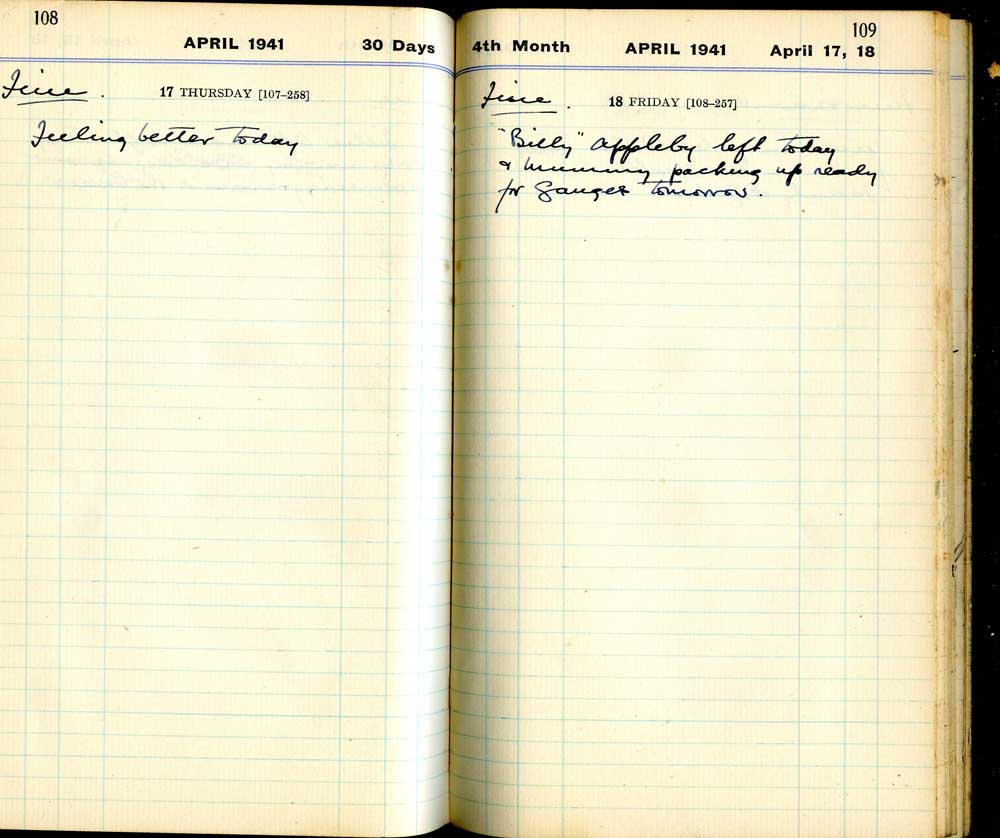 108
APRIL 1941 30 Days
Fine.
17 THURSDAY [107-258]
Feeling better today
109
4th Month APRIL 1941 April 17, 18
Fine.
18 FRIDAY [108-257]
"Billy" Appleby left today
& Mummy packing up ready
for Ganges tomorrow.